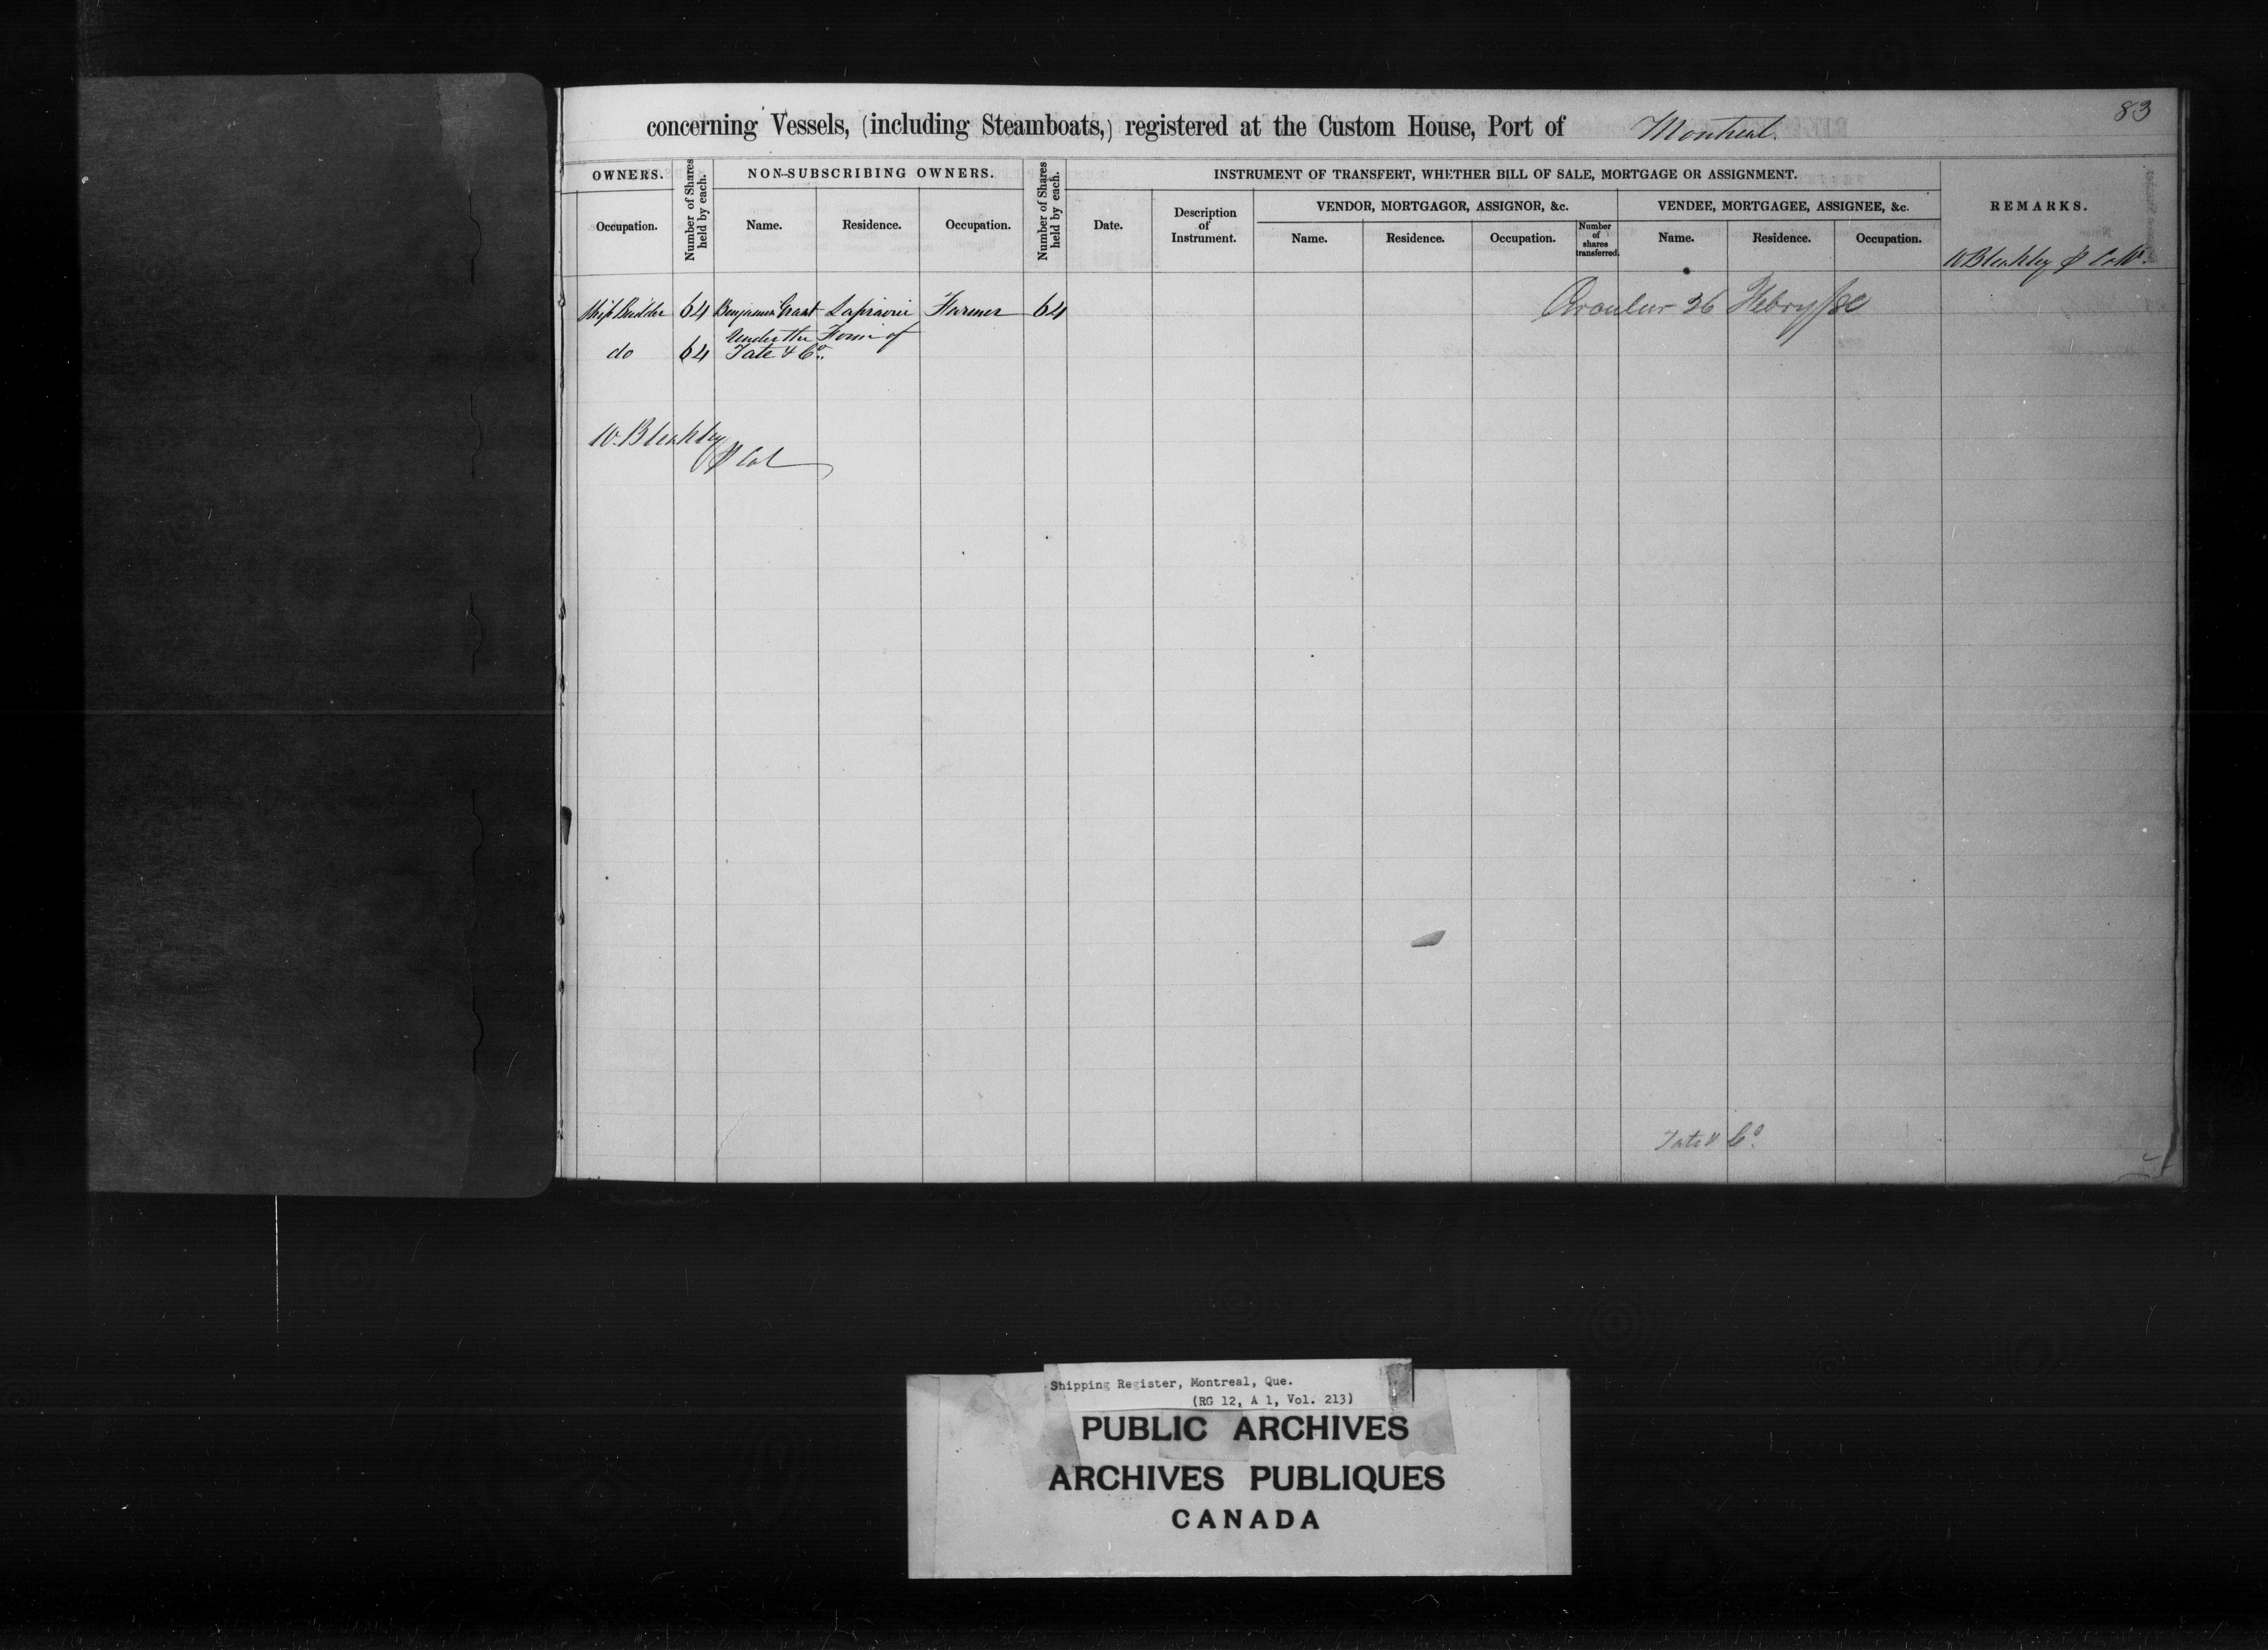 83
concerning Vessels, (including Steamboats,) registered at the Custom House, Port of Montreal.
OWNERS.
Number of Shares held by each.
NON-SUBSCRIBING OWNERS.
Number of Shares held by each.
INSTRUMENT OF TRANSFERT, WHETHER BILL OF SALE, MORTGAGE OR ASSIGNMENT.
REMARKS.
Occupation.
Name.
Residence.
Occupation.
Date.
Description
of
Instrument.
VENDOR, MORTGAGOR, ASSIGNOR, &c.
VENDEE, MORTGAGEE, ASSIGNEE, &c.
Name.
Residence.
Occupation.
Number
of
shares
transferred.
Name.
Residence.
Occupation.
W Bleakley
Ship Builder 64 Benjamin Grant Laprairie Farmer 64
Circular 26 Febry/
Under the Firm of
do 64 Tate & Co.
W. Bleakley
Tate & Co.
Shipping Register, Montreal, Que.
(RG 12, A 1, Vol. 213)
PUBLIC ARCHIVES
ARCHIVES PUBLIQUES
CANADA